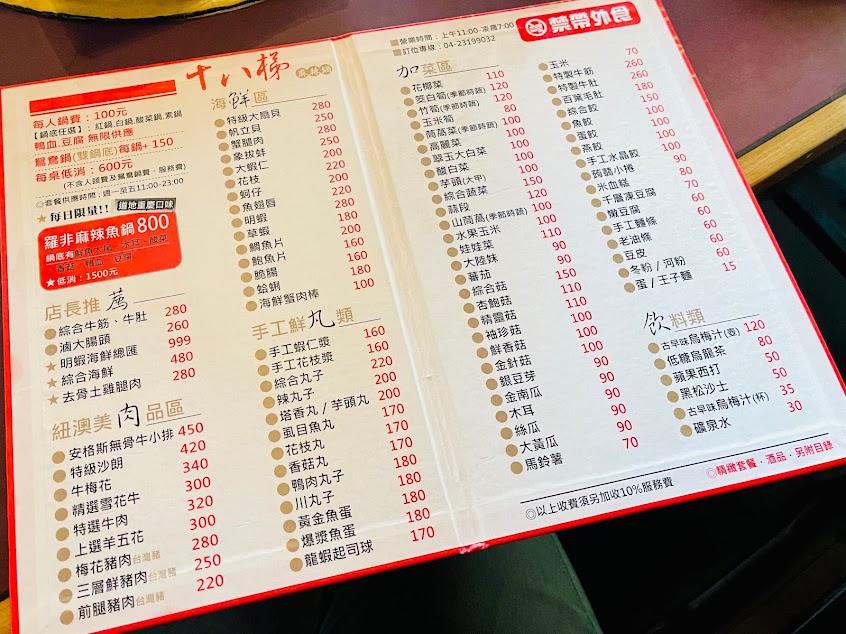 十八梯
麻辣鍋
每人鍋費：100元
【鍋底任選】：紅鍋,白鍋,酸菜鍋,素鍋
鴨血.豆腐 無限供應
鴛鴦鍋(雙鍋底)每鍋+ 150
每桌低消：600元
(不含人頭費及鴛鴦鍋費、服務費)
◎套餐供應時間：週一至五11:00-23:00
★每日限量!! 道地重慶口味
羅非麻辣魚鍋800
香菇、鴨血、豆腐
★低消：1500元
店長推薦
綜合牛筋、牛肚 280
滷大腸頭 260
★明蝦海鮮總匯 999
★綜合海鮮 480
★去骨土雞腿肉 280
紐澳美肉品區
安格斯無骨牛小排 450
特級沙朗 420
牛梅花 340
精選雪花牛 300
特選牛肉 320
上選羊五花 300
梅花豬肉台灣豬 280
三層鮮豬肉台灣豬 250
前腿豬肉台灣豬 220
海鮮區
特級大扇貝 280
帆立貝 250
蟹腿肉 250
象拔蚌 200
大蝦仁 220
花枝 200
蚵仔 200
魚翅唇 280
明蝦 180
草蝦 200
鯛魚片 160
鮑魚片 160
脆腸 180
蛤蜊 180
海鮮蟹肉棒 100
手工鮮丸類
手工蝦仁漿 160
手工花枝漿 160
綜合丸子 220
辣丸子 200
塔香丸 / 芋頭丸 200
虱目魚丸 170
花枝丸 170
香菇丸 180
鴨肉丸子 180
川丸子 180
黃金魚蛋 180
爆漿魚蛋 180
龍蝦起司球 170
■營業時間：上午11:00-凌晨7:00
■訂位專線：04-23199032
禁帶外食
加菜區
花椰菜 110
筊白筍(季節時蔬) 120
竹筍(季節時蔬) 120
玉米筍 80
茼萵菜(季節時蔬) 100
高麗菜 100
翠玉大白菜 100
酸白菜 100
芋頭(大甲) 100
綜合蔬菜 150
蒜段 120
山茼萵(季節時蔬) 100
水果玉米 100
娃娃菜 110
大陸妹 90
蕃茄 90
綜合菇 150
杏鮑菇 110
精靈菇 110
袖珍菇 100
鮮香菇 100
金針菇 100
銀豆芽 90
金南瓜 90
木耳 90
絲瓜 90
大黃瓜 90
馬鈴薯 70
玉米 70
特製牛筋 260
特製牛肚 260
百葉毛肚 180
綜合餃 180
魚餃 100
蛋餃 100
燕餃 100
手工水晶餃 100
蒟蒻小捲 90
米血糕 80
千層凍豆腐 70
嫩豆腐 60
手工麵條 60
老油條 60
豆皮 60
冬粉 / 河粉 60
蛋 / 王子麵 15
飲料類
古早味烏梅汁(壺) 120
低糖烏龍茶 80
蘋果西打 50
黑松沙士 50
古早味烏梅汁(杯) 35
礦泉水 30
◎以上收費須另加收10%服務費
◎精緻套餐・酒品・另附目錄